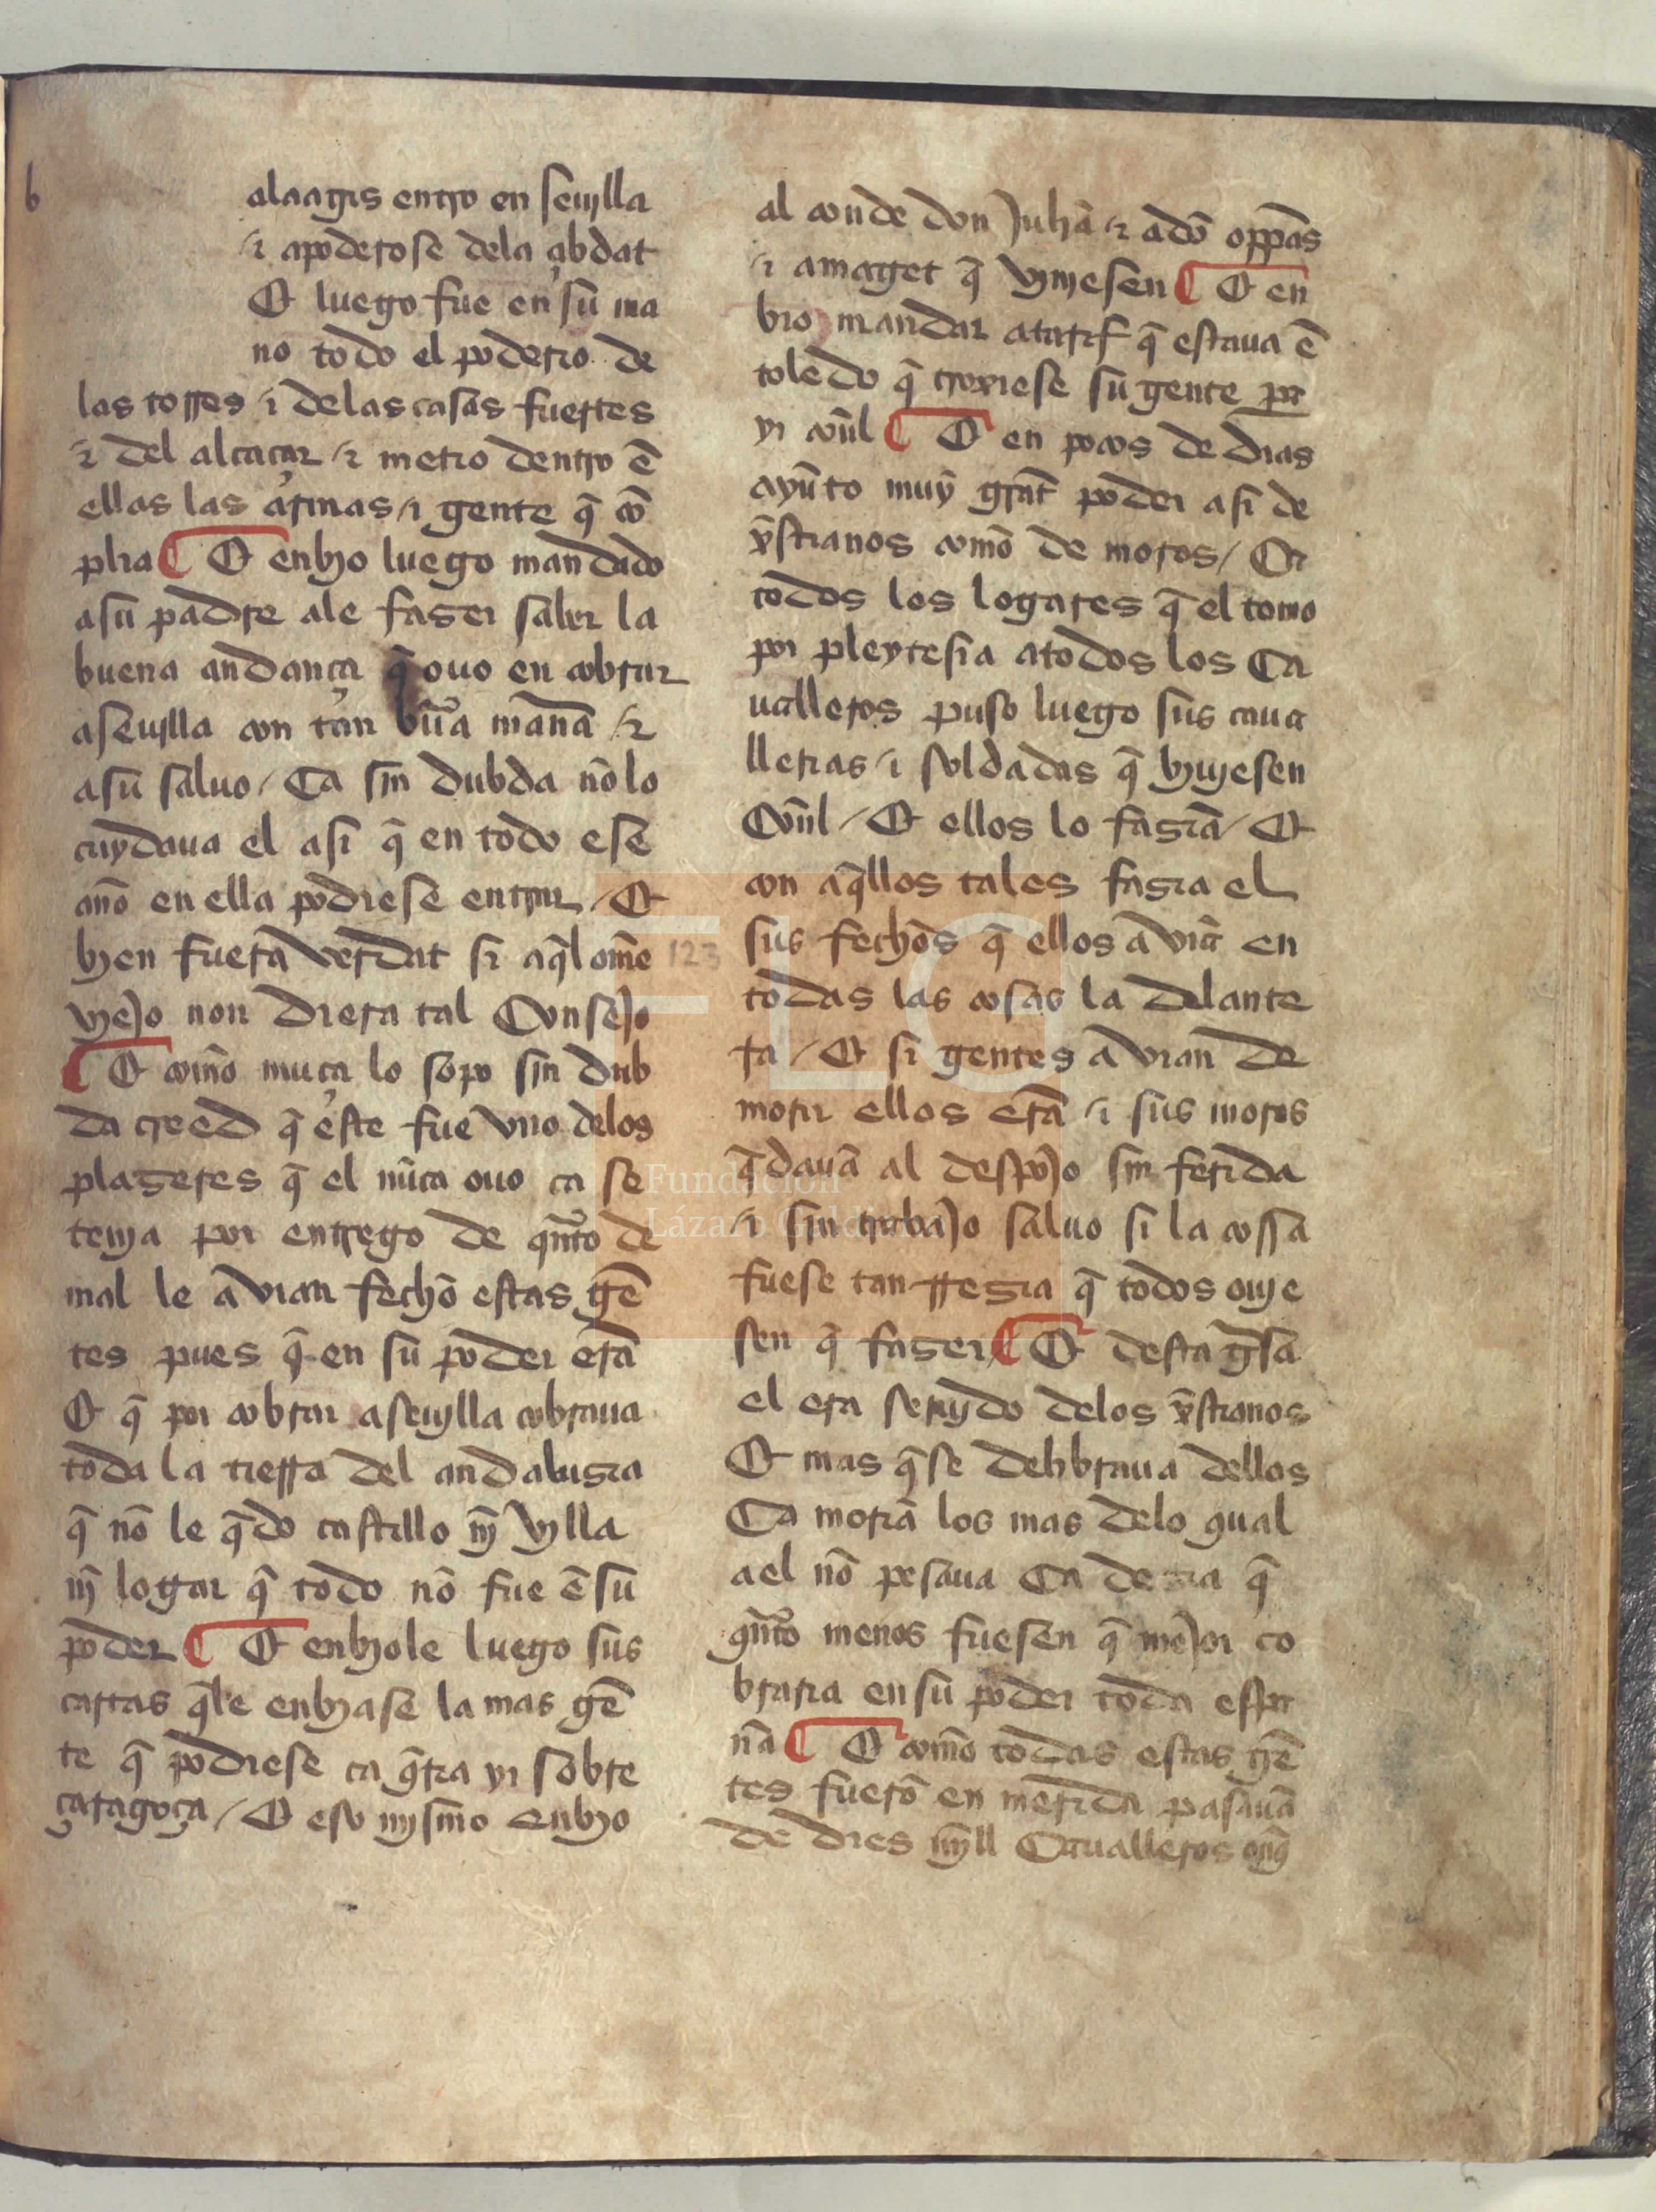 b
alaagis entro en seuylla
⁊ apoderose dela çibdat
Et luego fue en su ma
no todo el poderio de
las torres ⁊ delas casas fuertes
⁊ del alcaçar ⁊ metio dentro ẽ
ellas las armas ⁊ gente q̃ cõ
plia ¶ Et enbyo luego mandado
asu padre ale faser saber la
buena andança q̃ ouo en cobrar
aseuylla con tan bũa manã ⁊
asu saluo / Ca sin dubda nõ lo
cuydaua el asi q̃ en todo ese
año en ella podiese entrar / Et
byen fuera verdat si aq̃l om̃e
vyejo non diera tal Consejo
¶ Et com̃o muça lo sopo sin dub
da creed q̃ este fue vno delos
plaseres q̃ el nũca ouo ca se
tenya por entrego de qñto de
mal le avian fecho estas gẽ
tes pues q̃ en su poder erã
Et q̃ por cobrar aseuylla cobraua
toda la tierra del andalusia
q̃ nõ le q̃do castillo nȳ vylla
nȳ logar q̃ todo nõ fue ẽ su
poder ¶ Et enbyole luego sus
cartas q̃le enbyase la mas gẽ
te q̃ podiese ca q̃rra yr sobre
çaragoça / Et eso mysmo enbyo
123
al conde don Juhã ⁊ adõ oppas
⁊ amaget q̃ vynyesen ¶ Et en
bio mandar atarif q̃ estaua ẽ
toledo q̃ troxiese su gente pa
yr cõnl ¶ Et en pocos de dias
ayũto muy grãt poder asi de
xp̃stianos com̃o de moros / Et
todos los logares q̃ el tomo
por pleytesia atodos los Ca
ualleros puso luego sus caua
llerias ⁊ soldadas q̃ byuyesen
Cõnl / Et ellos lo fasiã / Et
con aq̃llos tales fasia el
sus fechos q̃ ellos aviã en
todas las cosas la delante
ra / Et si gentes avian de
morir ellos erã ⁊ sus moros
q̃dauã al despojo sin ferida
⁊ sin trabajo saluo si la cossa
fuese tan rresia q̃ todos ouye
sen q̃ faser ¶ Et desta gĩsa
el era seruydo delos xp̃stianos
Et mas q̃ se delibraua dellos
Ca moriã los mas delo qual
ael nõ pesaua Ca desia q̃
qñto menos fuesen q̃ mejor co
braria en su poder toda espa
ñã ¶ Et com̃o todas estas gẽ
tes fuerõ en merida pasauã
de dies myll Caualleros
Fundación
Lázaro Galdiano
FLG